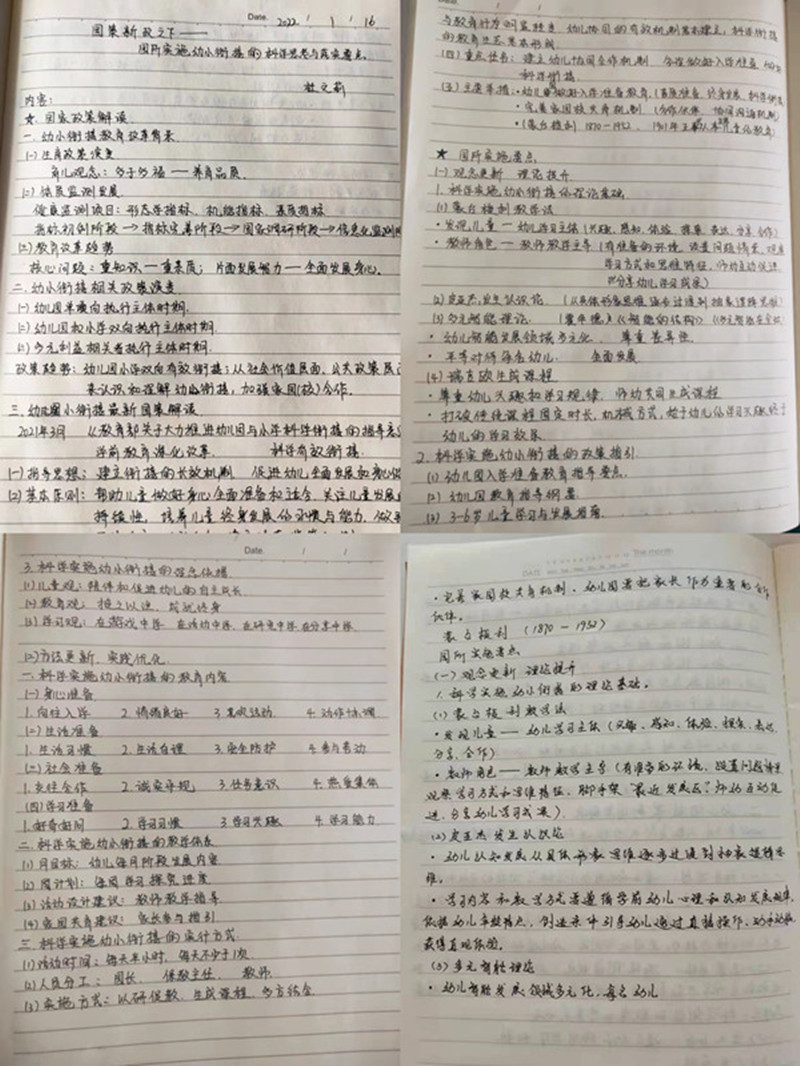 Date. 2022 / 1 / 16
国策新政之下——
园所实施幼小衔接的科学思想与落实要点。
杜文莉
内容:
★ 国家政策解读
一. 幼小衔接教育改革背景
(一) 生育政策演变
育儿观念: 多子多福 — 养育品展.
(二) 体质监测发展
体质监测项目: 形态学指标、机能指标、素质指标
指标初创阶段→指标完善阶段→国家调研阶段→信息化监测阶
(三) 教育改革趋势
核心问题: 重知识—重素质; 片面发展能力—全面发展身心.
二. 幼小衔接相关政策演变
(一) 幼儿园单向执行主体时期.
(二) 幼儿园和小学双向执行主体时期.
(三) 多元利益相关者执行主体时期.
政策趋势: 幼儿园小学双向有效衔接; 从社会价值层面、公共政策层
来认识和理解幼小衔接, 加强家园(校)合作.
三. 幼儿园小衔接最新国策解读
2021年3月 《教育部关于大力推进幼儿园与小学科学衔接的指导意
学前教育深化改革. 科学有效衔接.
(一) 指导思想: 建立衔接的长效机制 促进幼儿全面发展和身心
(二) 基本原则: 帮助儿童做好身心全面准备和适应. 关注儿童发展
持续性, 培养儿童终身发展的习惯与能力.
Date. / /
幼儿协同的有效机制基本建立, 科学衔接
的教育生态基本形成
(四) 重点任务: 建立幼儿协同合作机制
科学衔接.
(五) 主要举措: ·幼儿园做好入学准备教育.
·完善家园校共育机制 (合作伙伴 协同沟通机制)
·(蒙台梭利 1870-1952.
★ 园所实施要点
(一) 观念更新 理论提升
1. 科学实施幼小衔接的理论基础
(1) 蒙台梭利教学法
· 发现儿童 — 幼儿学习主体 (兴趣、感知、体验、探索、表达、分享、合作)
· 教师角色 — 教师教学主导 (有准备的环境、设置问题情景、观察
学习方式和思维特征, 师幼互动促进,
分享幼儿学习成果)
(2) 皮亚杰发生认识论 (从具体形象思维逐步过渡到抽象逻辑思维)
(3) 多元智能理论. (霍华德)《智能的结构》
· 幼儿智能发展领域多元化. 尊重差异性.
· 平等对待每名幼儿. 全面发展
(4) 瑞吉欧生成课程
· 尊重幼儿兴趣和学习规律, 师幼共同生成课程
· 打破传统课程固定时长、机械方式, 始于幼儿的学习兴趣终于
幼儿的学习效果
2. 科学实施幼小衔接的政策指引
(1) 幼儿园入学准备教育指导要点.
(2) 幼儿园教育指导纲要
(3) 3-6岁儿童学习与发展指南.
Date. / /
3. 科学实施幼小衔接的理念依据
(1) 儿童观: 陪伴和促进幼儿的自主成长
(2) 教育观: 授之以渔, 成就终身
(3) 学习观: 在游戏中学、在活动中学、在研究中学、在分享中学
(二) 方法更新 实践优化
一. 科学实施幼小衔接的教育内容
(一) 身心准备
1. 向往入学 2. 情绪良好 3. 喜欢运动 4. 动作协调
(二) 生活准备
1. 生活习惯 2. 生活自理 3. 安全防护 4. 参与劳动
(三) 社会准备
1. 交往合作 2. 诚实守规 3. 任务意识 4. 热爱集体
(四) 学习准备
1. 好奇好问 2. 学习习惯 3. 学习兴趣 4. 学习能力
二. 科学实施幼小衔接的教学体系
(1) 月目标: 幼儿每月阶段发展内容
(2) 周计划: 每周学习探究进度
(3) 活动设计建议: 教师教学指导
(4) 家园共育建议: 家长参与指引
三. 科学实施幼小衔接的实行方式
(1) 活动时间: 每天半小时、每天不少于1次
(2) 人员分工: 园长、保教主任、教师
(3) 实施方式: 以研促教、生成课程、多方结合
· 完善家园校共育机制. 幼儿园要把家长作为重要的合作
伙伴.
蒙台梭利 (1870-1952)
园所实施要点
(一) 观念更新 理论提升
1. 科学实施幼小衔接的理论基础.
(1) 蒙台梭利教学法
· 发现儿童 — 幼儿学习主体 (兴趣、感知、体验、探索、表达、
分享、合作)
· 教师角色 — 教师教学主导 (有准备的环境、设置问题情景
观察学习方式和思维特征, 脚手架"最近发展区" 师幼互动促
进, 分享幼儿学习成果)
(2) 皮亚杰发生认识论
· 幼儿认知发展从具体形象思维逐步过渡到抽象逻辑思
维.
· 学习内容和教学方式需遵循学前幼儿心理和认知发展规律,
依据幼儿年龄特点, 创造条件引导幼儿通过直接操作、动手动脑
获得直观体验.
(3) 多元智能理论
· 幼儿智能发展领域多元化, 每名幼儿